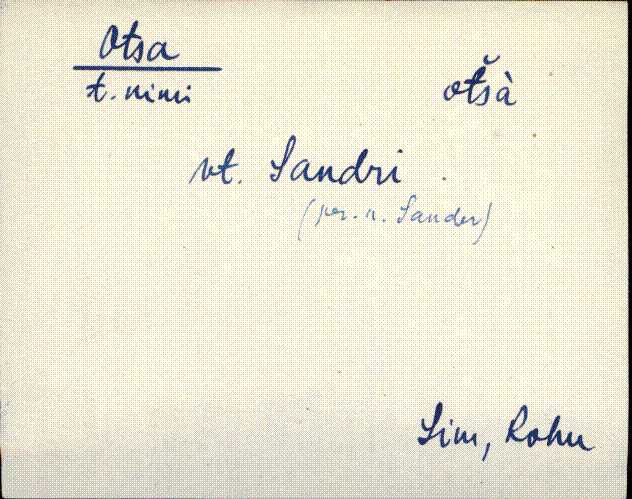 Otsa
t. nimi
ot̆sà
vt. Sandri
(per. n. Sander)
Sim, Rohu